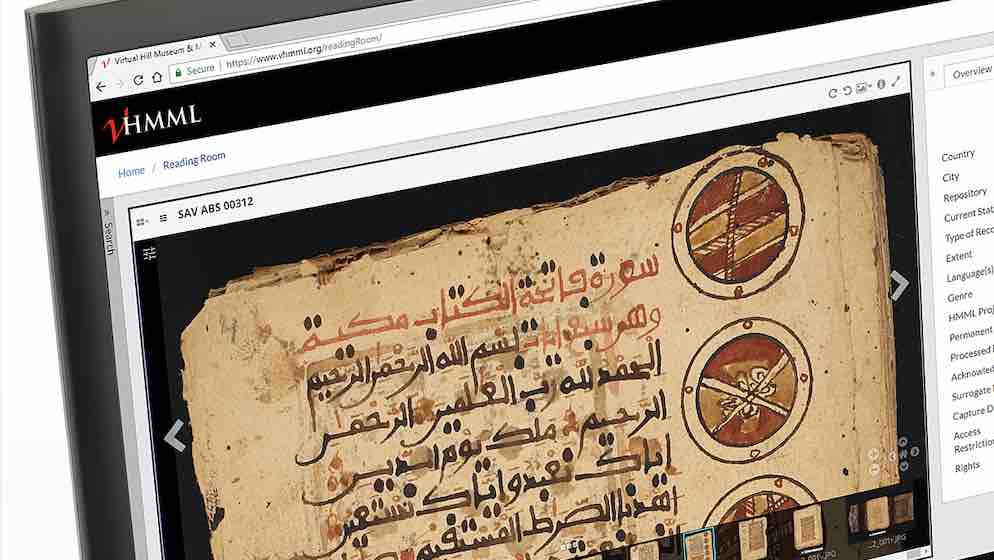 Virtual Hill Museum & M
Secure
https://www.vhmml.org/readingRoom/
vHMML
Home / Reading Room
Search
SAV ABS 00312
سورة فاتحة الكتاب مكية
وهي سبع ايات بسم الله الرحمن الرحيم
الحمد لله رب العلمين الرحمن
الرحيم ملك يوم الدين
اياك نعبد واياك نستعين
اهدنا الصرط المستقيم
Overview
Country
City
Repository
Current Stat
Type of Reco
Extent
Language(s)
Genre
HMML Proj
Permanent
Processed
Acknowled
Surrogate
Capture D
Access
Restriction
Rights
_001v.JPG
_2_001v.JPG